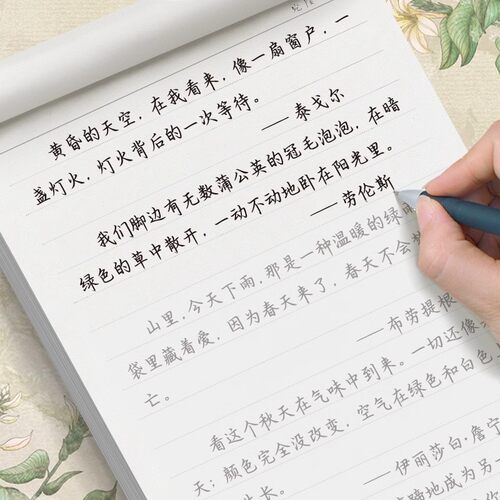 黄昏的天空，在我看来，像一扇窗户，一
盏灯火，灯火背后的一次等待。
——泰戈尔
我们脚边有无数蒲公英的冠毛泡泡，在暗
绿色的草中散开，一动不动地卧在阳光里。
——劳伦斯
山里，今天下雨，那是一种温暖的绿
袋里藏着爱，因为春天来了，春天不会
亡。
——布劳提根
看这个秋天在气味中到来。一切还像
天：颜色完全没改变，空气在绿色和白色
——伊丽莎白·詹宁
暗地成为另一
生长。